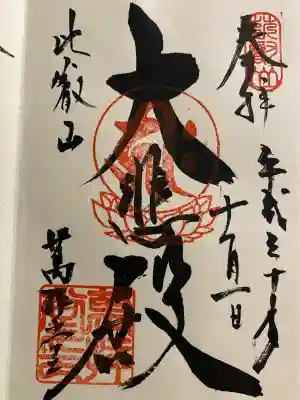 奉拝
平成三十年
十一月一日
大悲殿
比叡山
萬拝堂